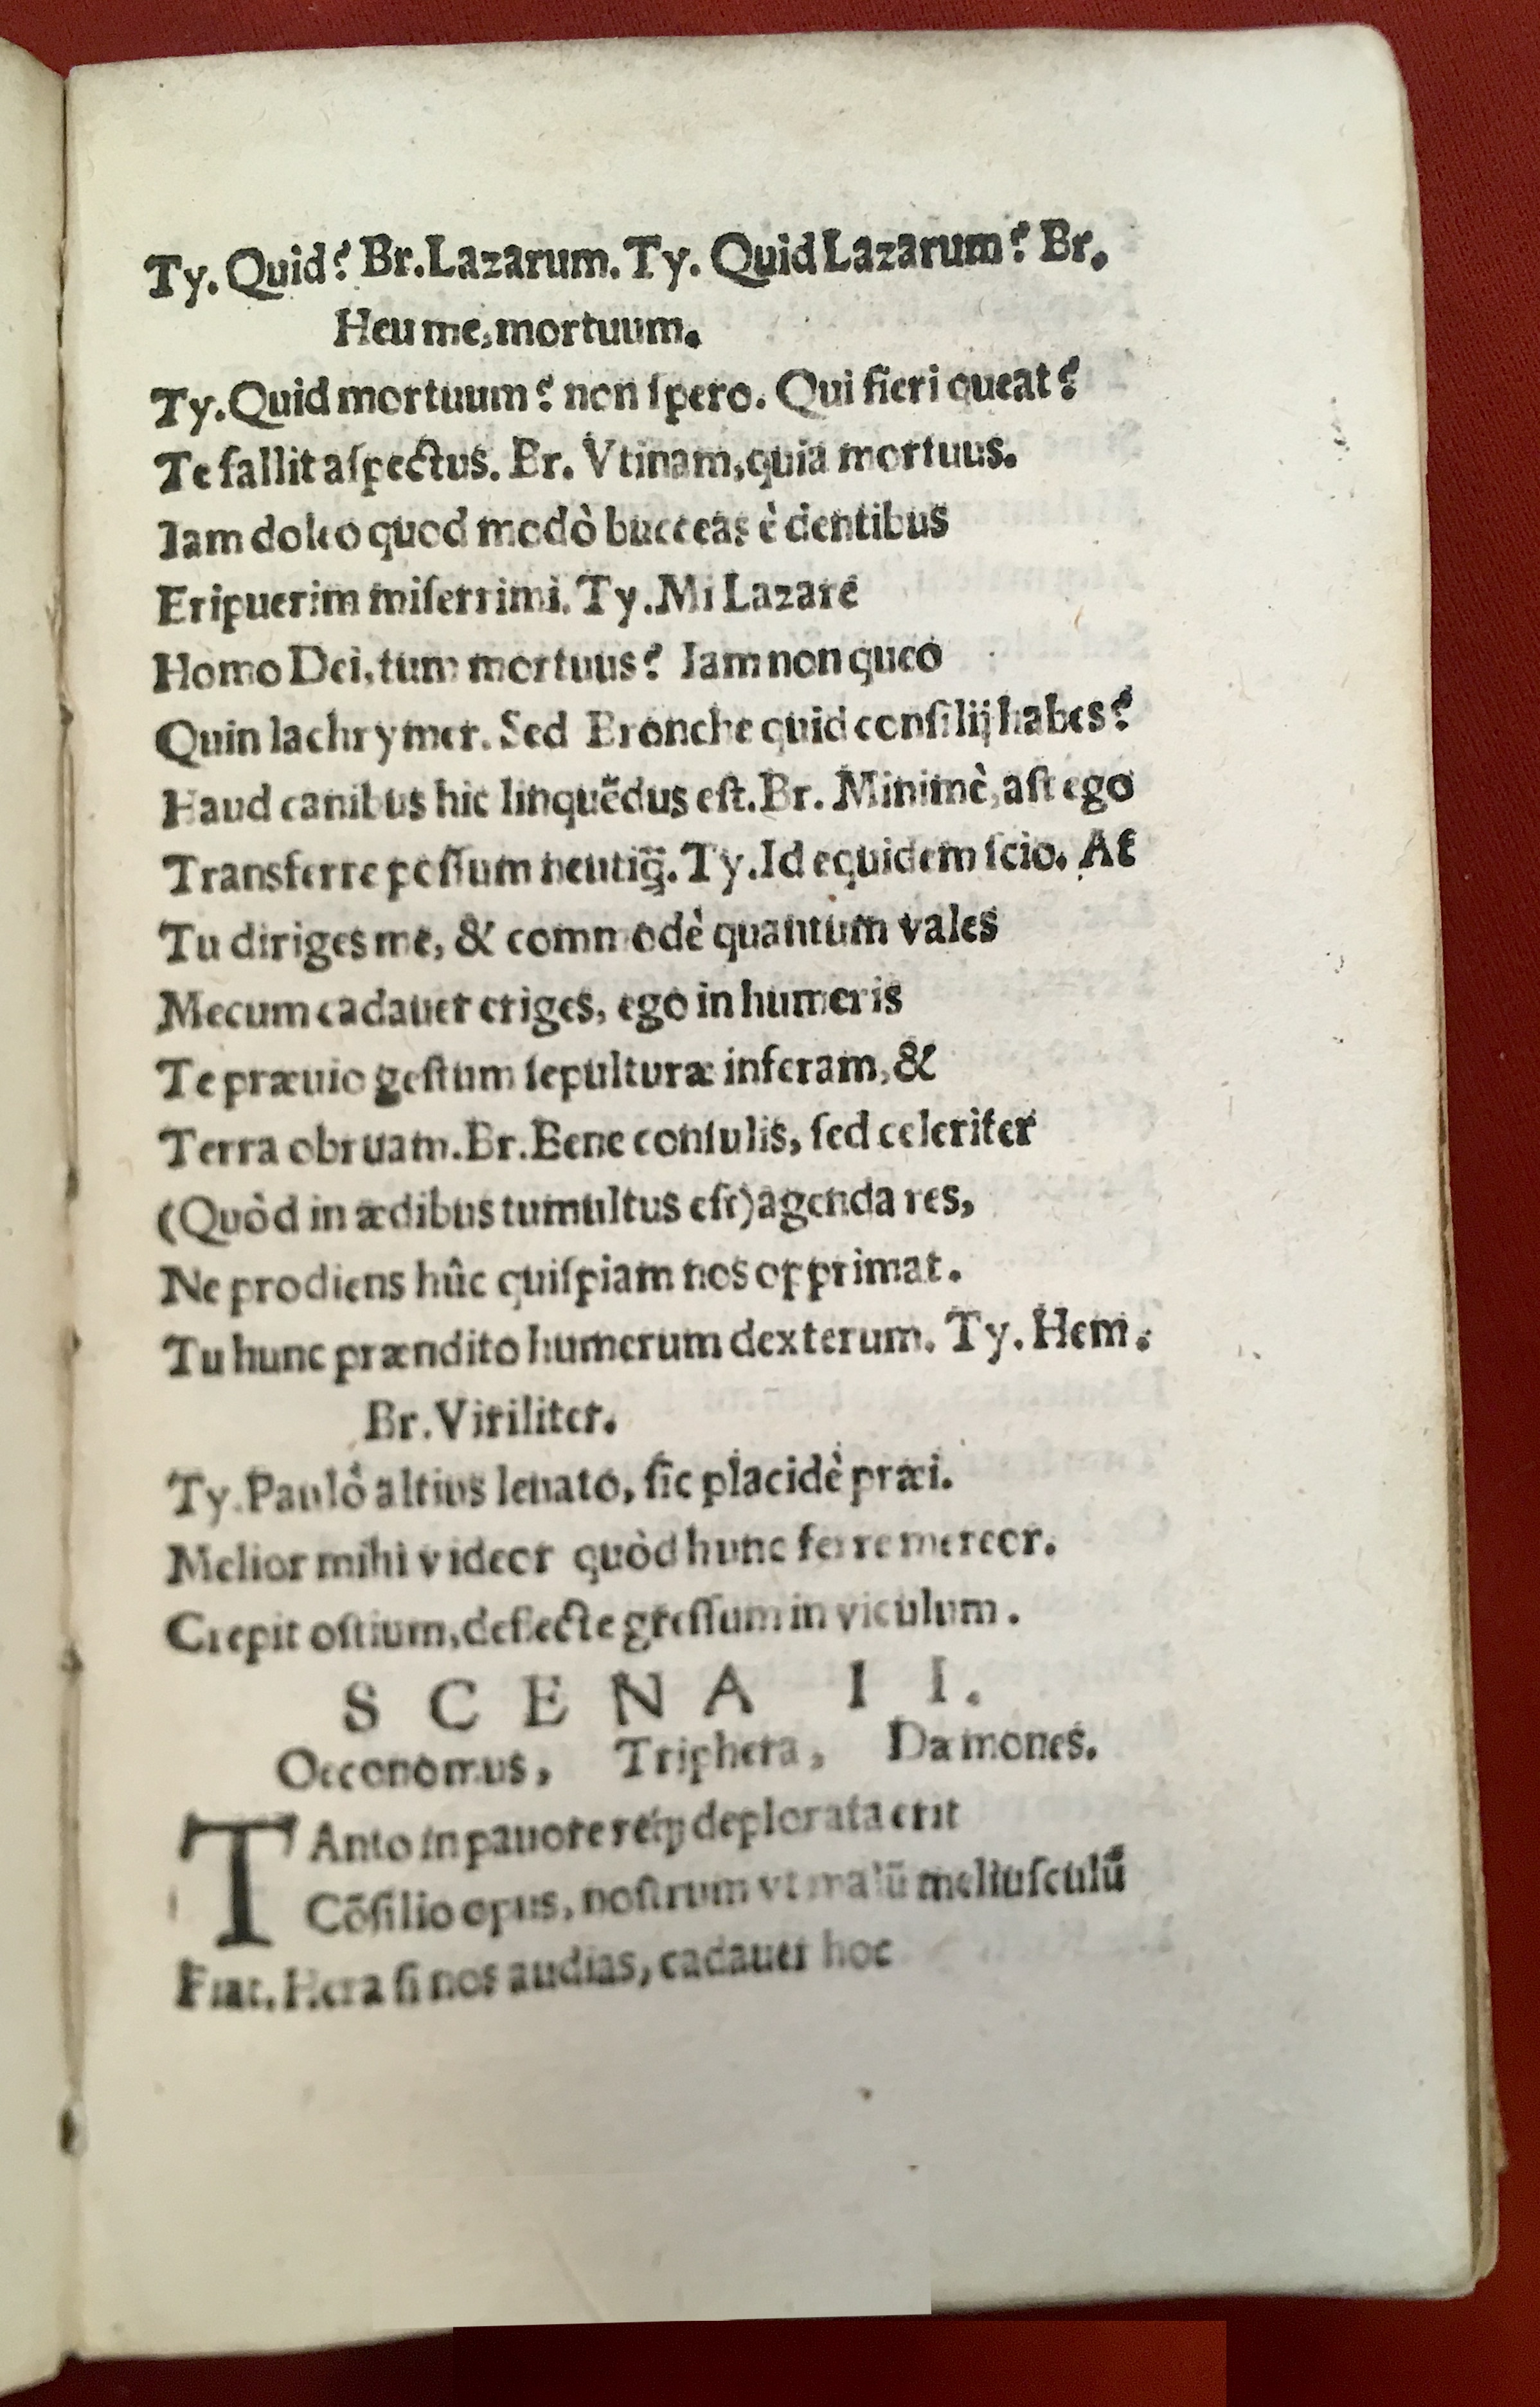 Ty. Quid? Br. Lazarum. Ty. Quid Lazarum? Br.
Heu me, mortuum.
Ty. Quid mortuum? non ſpero. Qui fieri queat?
Te fallit aſpectus. Br. Vtinam, quia mortuus.
Iam doleo quod modò bucceas è dentibus
Eripuerim miſerrimi. Ty. Mi Lazare
Homo Dei, tun mortuus? Iam non queo
Quin lachrymer. Sed Bronche quid conſilij habes?
Haud canibus hic linquẽdus eſt. Br. Minimè, aſt ego
Transferre poſſum neutiq̃. Ty. Id equidem ſcio. At
Tu diriges me, & commodè quantum vales
Mecum cadauer eriges, ego in humeris
Te præuio geſtum ſepulturæ inferam, &
Terra obruam. Br. Bene conſulis, ſed celeriter
(Quòd in ædibus tumultus eſt) agenda res,
Ne prodiens hûc quiſpiam nos opprimat.
Tu hunc prændito humerum dexterum. Ty. Hem.
Br. Viriliter.
Ty. Paulò altius leuato, ſic placidè præi.
Melior mihi videor quòd hunc ferre mereor.
Crepit oſtium, deflecte greſſum in viculum.
SCENA II.
Oeconomus, Triphera, Damones.
TAnto in pauore reíq; deplorata erit
Cõſilio opus, noſtrum vt malũ meliuſculũ
Fiat. Hera ſi nos audias, cadauer hoc